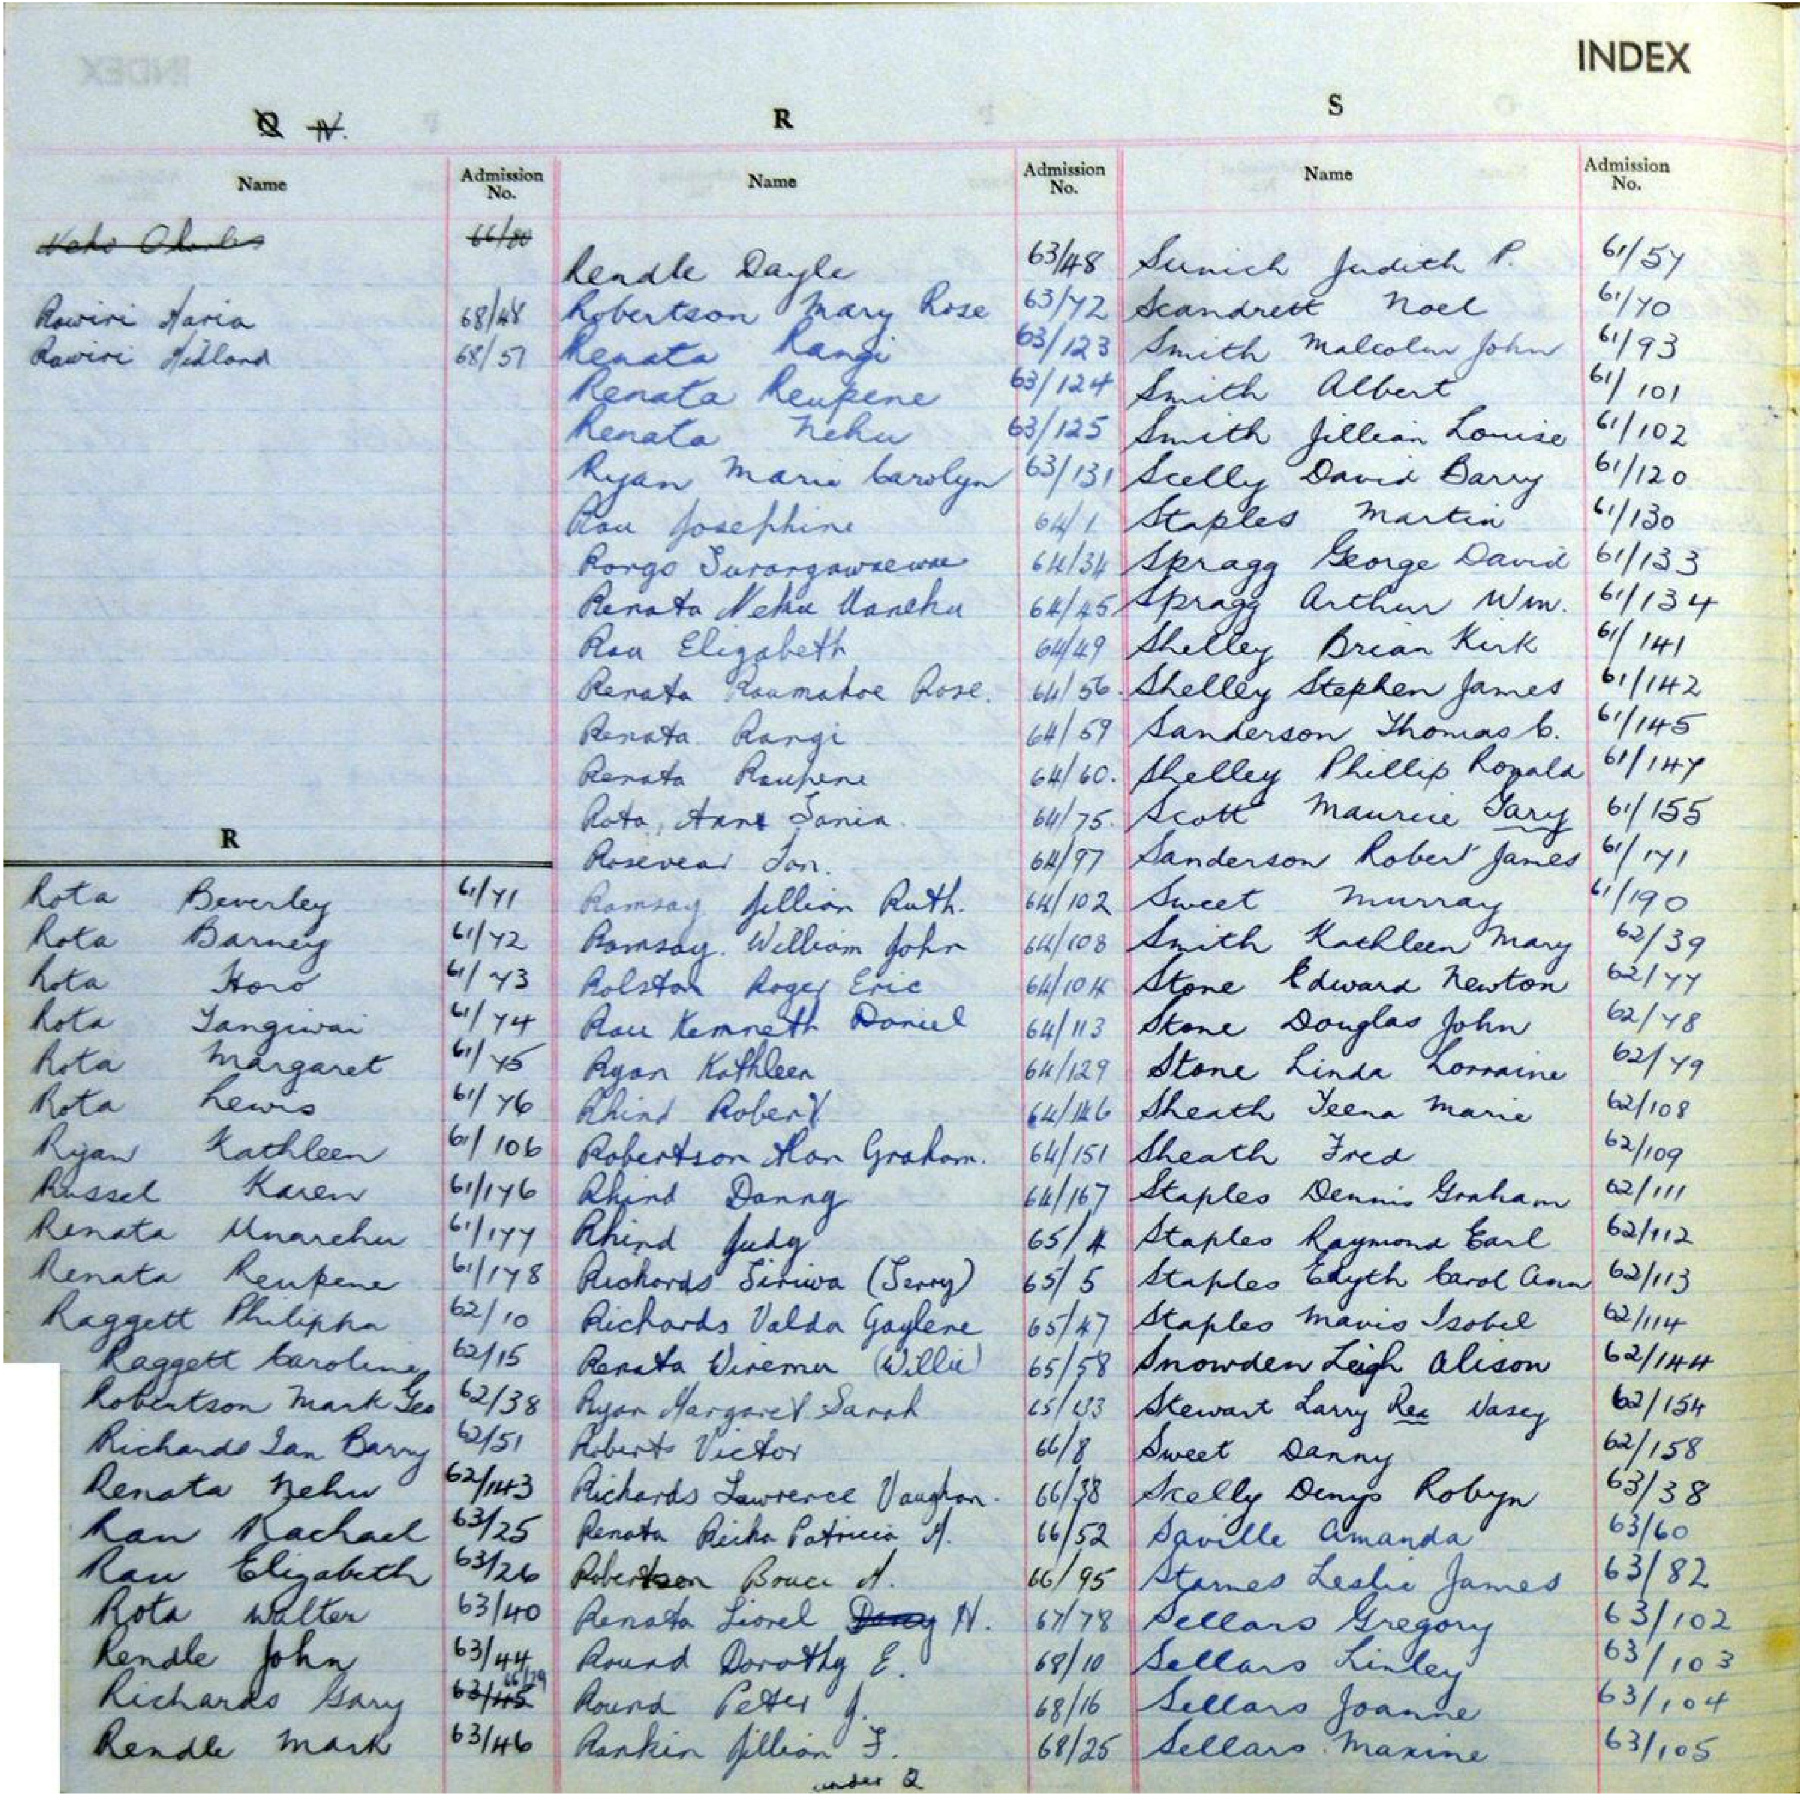 INDEX
Q N.
Name Admission No.
Neho Charles 66/80
Rawiri Haria 68/48
Rawiri Hedland 68/57
R
Rota Beverley 61/71
Rota Barney 61/72
Rota Horo 61/73
Rota Tangiwai 61/74
Rota Margaret 61/75
Rota Lewis 61/76
Ryan Kathleen 61/106
Russel Karen 61/176
Renata Unarehu 61/177
Renata Reupene 61/178
Raggett Philippa 62/10
Raggett Caroline 62/15
Robertson Mark Geo 62/38
Richards Ian Barry 62/51
Renata Nehu 62/143
Rau Rachael 63/25
Rau Elizabeth 63/26
Rota Walter 63/40
Rendle John 63/44
Richards Gary 63/45 66/29
Rendle Mark 63/46
R
Name Admission No.
Rendle Dayle 63/48
Robertson Mary Rose 63/72
Renata Rangi 63/123
Renata Reupene 63/124
Renata Nehu 63/125
Ryan Marie Carolyn 63/131
Rau Josephine 64/1
Rongo Turangawaewae 64/34
Renata Nehu Uanehu 64/45
Rau Elizabeth 64/49
Renata Raumahoe Rose. 64/56.
Renata Rangi 64/59
Renata Raupene 64/60.
Rota, Anne Tania. 64/75.
Rosevear Ian. 64/97
Ramsay Jillian Ruth. 64/102
Ramsay. William John 64/108
Rolston Roger Eric 64/104
Rau Kenneth Daniel 64/113
Ryan Kathleen 64/129
Rhind Robert 64/146
Robertson Alan Graham. 64/151
Rhind Danny 64/167
Rhind Judy 65/4
Richards Tiriwa (Terry) 65/5
Richards Valda Gaylene 65/47
Renata Wiremu (Willie) 65/58
Ryan Margaret Sarah 65/133
Roberts Victor 66/8
Richards Lawrence Vaughan. 66/38
Renata Reiha Patricia A. 66/52
Robertson Bruce A. 66/95
Renata Lionel N. 67/78
Round Dorothy E. 68/10
Round Peter J. 68/16
Rankin Jillian F. 68/25
under Q
S
Name Admission No.
Sunich Judith P. 61/57
Scandrett Noel 61/70
Smith Malcolm John 61/93
Smith Albert 61/101
Smith Jillian Louise 61/102
Scelly David Barry 61/120
Staples Martin 61/130
Spragg George David 61/133
Spragg Arthur Wm. 61/134
Shelley Brian Kirk 61/141
Shelley Stephen James 61/142
Sanderson Thomas C. 61/145
Shelley Phillip Ronald 61/147
Scott Maurice Gary 61/155
Sanderson Robert James 61/171
Sweet Murray 61/190
Smith Kathleen Mary 62/39
Stone Edward Newton 62/77
Stone Douglas John 62/78
Stone Linda Lorraine 62/79
Sheath Teena Marie 62/108
Sheath Fred 62/109
Staples Dennis Graham 62/111
Staples Raymond Earl 62/112
Staples Edyth Carol Ann 62/113
Staples Mavis Isobel 62/114
Snowden Leigh Alison 62/144
Stewart Larry Rex Vasey 62/154
Sweet Danny 62/158
Skelly Denys Robyn 63/38
Saville Amanda 63/60
Starnes Leslie James 63/82
Sellars Gregory 63/102
Sellars Linley 63/103
Sellars Joanne 63/104
Sellars Maxine 63/105